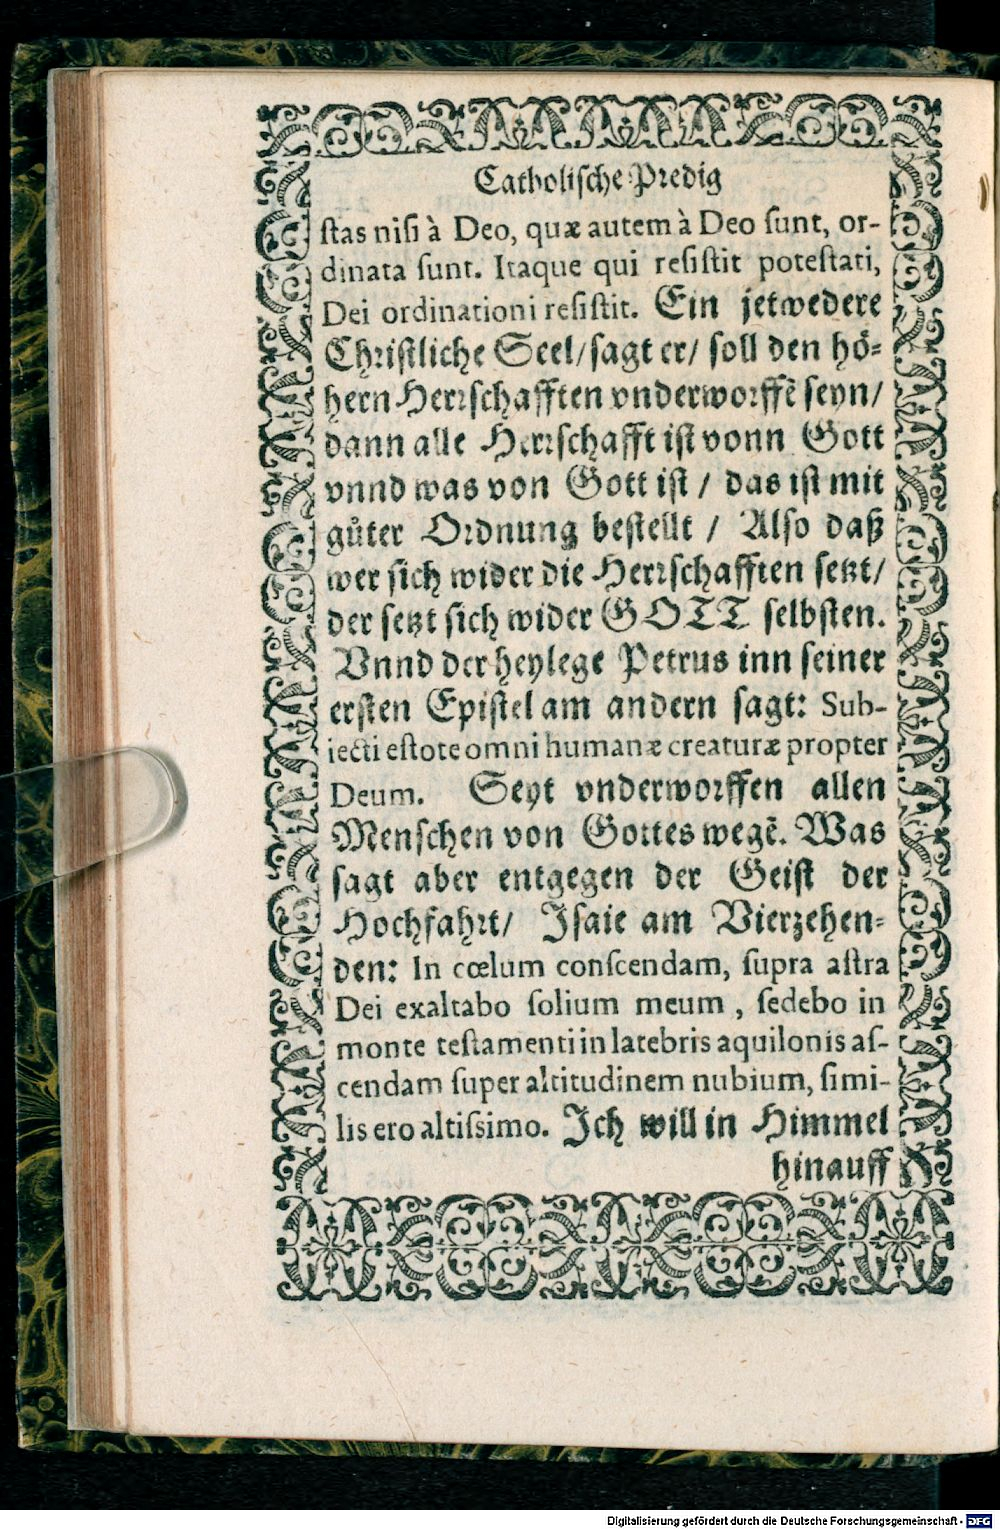 Catholische Predig
ſtas niſi à Deo, quæ autem à Deo ſunt, or-
dinata ſunt. Itaque qui reſiſtit poteſtati,
Dei ordinationi reſiſtit. Ein jetwedere
Chriſtliche Seel/ ſagt er/ ſoll den hoͤ-
hern Herrſchafften vnderworffẽ ſeyn/
dann alle Herrſchafft iſt vonn Gott
vnnd was von Gott iſt / das iſt mit
guͤter Ordnung beſtellt / Alſo daß
wer ſich wider die Herrſchafften ſetzt/
der ſetzt ſich wider GOTT ſelbſten.
Vnnd der heylege Petrus inn ſeiner
erſten Epiſtel am andern ſagt: Sub-
iecti eſtote omni humanæ creaturæ propter
Deum. Seyt vnderworffen allen
Menſchen von Gottes wegẽ. Was
ſagt aber entgegen der Geiſt der
Hochfahrt/ Jſaie am Vierzehen-
den: In cœlum conſcendam, ſupra aſtra
Dei exaltabo ſolium meum , ſedebo in
monte teſtamenti in latebris aquilonis aſ-
cendam ſuper altitudinem nubium, ſimi-
lis ero altiſsimo. Jch will in Himmel
hinauff
Digitalisierung gefördert durch die Deutsche Forschungsgemeinschaft - DFG